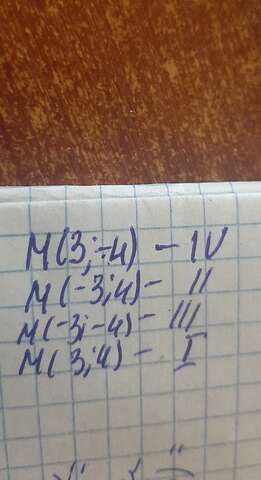 M(3;-4) - IV
M(-3;4) - II
M(-3;-4) - III
M(3;4) - I